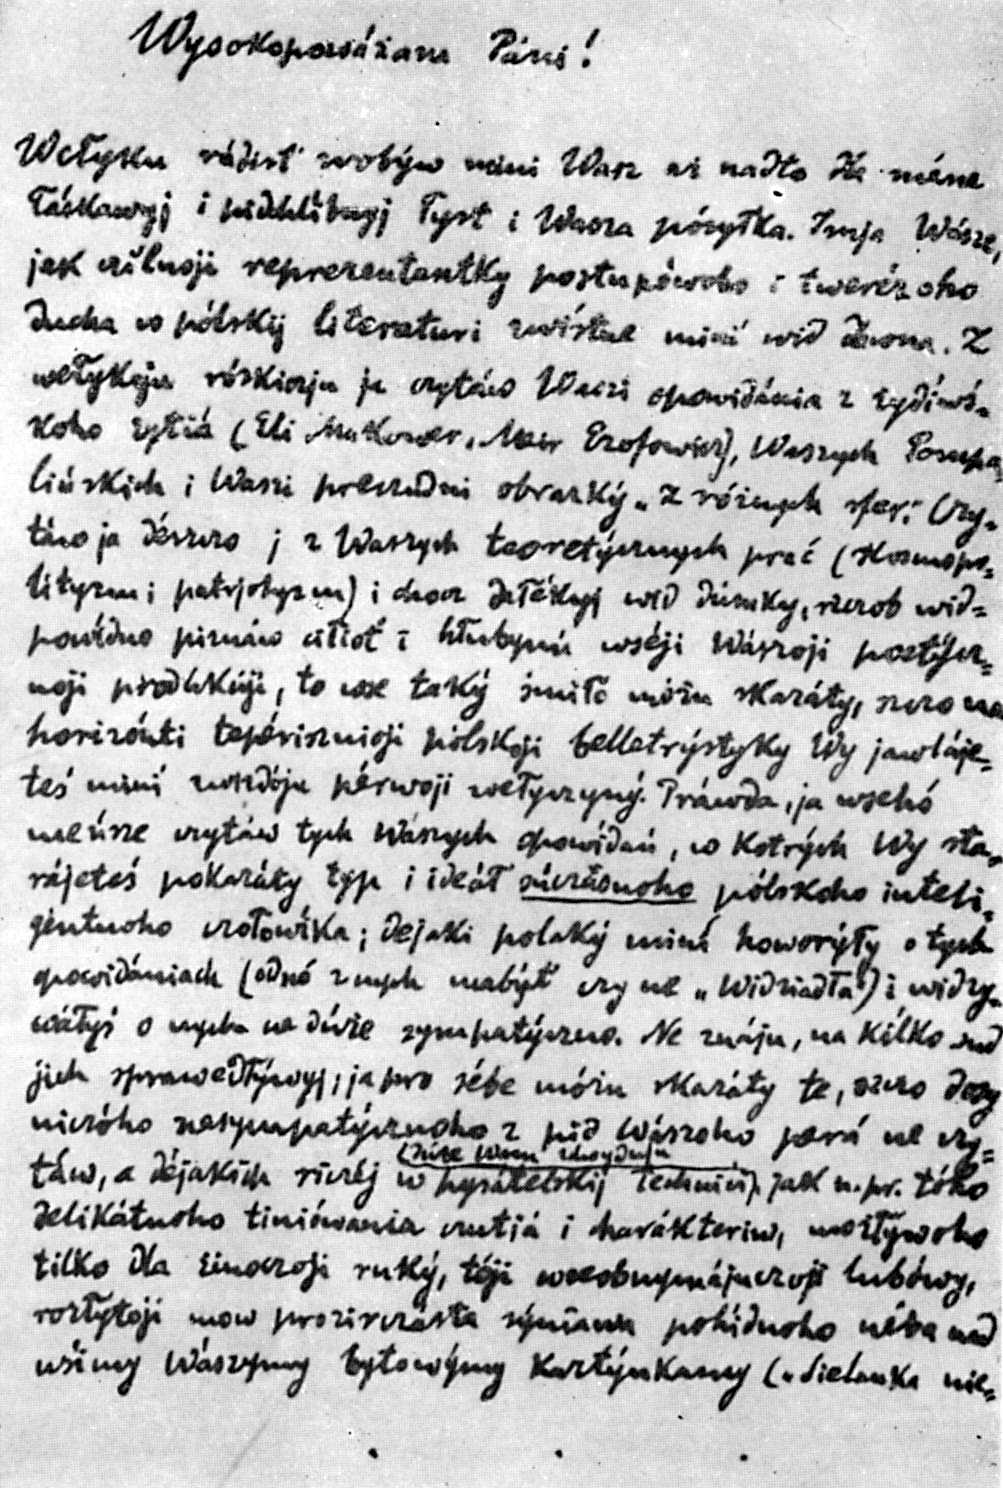 Wysokopoważana Páni!
Wełyku rádist' zrobýw meni Wasz aż nadto dla méne
łáskawyj i pidchlíbnyj łyst i Wasza pósyłka. Imja Wásze,
jak czílnoji reprezentantky postupówoho i twerézoho
ducha w pólskij literaturi zwístne mini wid dawna. Z
wełykoju róskiszju ja czytáw Waszi opowidánia z żydíwś-
koho żytiá (Eli Makower, Meir Ezofowicz), Waszych Pompa-
lińskich i Waszi preczudni obrazký „Z różnych sfer". Czy-
táw ja dészczo j z Waszych teoretýcznych prać (Kosmopo-
lityzm i patrjotyzm) i choć dałékyj wid dúmky, szczob wid-
powídno piznáw ciłiść i hłubynú wséji Wászoji poetýcz-
noji prodhkciji, to wse taký śmiło móżu skazáty, szczo na
horizónti tepérisznioji pólskoji belletrýstyky Wy jawlájе-
teś mini zwizdóju pérwoji wełyczyný. Práwda, ja wsehó
menśze czytáw tych Wászych opowídań, w kotrých Wy sta-
rájeteś pokazáty typ i ideáł súczásnoho pólskoho inteli-
géntnoho czołowíka; dejaki polaký mini howorýły o tych
opowidániach (odnó z nych mabýt' czy ne „Widziadła") i widzy-
wáłyś o nych ne dúże sympatýczno. Ne znáju, na kílko sud
jich sprawedłýwyj; ja pro sébe móżu skazáty te, szczo dosy
niczóho nesympatýcznoho z pid Wászoho perá ne czy-
táw, a déjakich riczéj w pysátelskij technici (duże wam zawyduju), jak n. pr. tóho
delikátnoho tiniówania czutiá i charákteriw, możływoho
tilko dla żinoczoji ruký, tóji wseobnymájuczoji lubówy,
rozłytoji mow prozirczásta syniawa pohídnoho néba nad
wsimy Wászymy bytowýmy kartýnkamy („Sielanka nie-